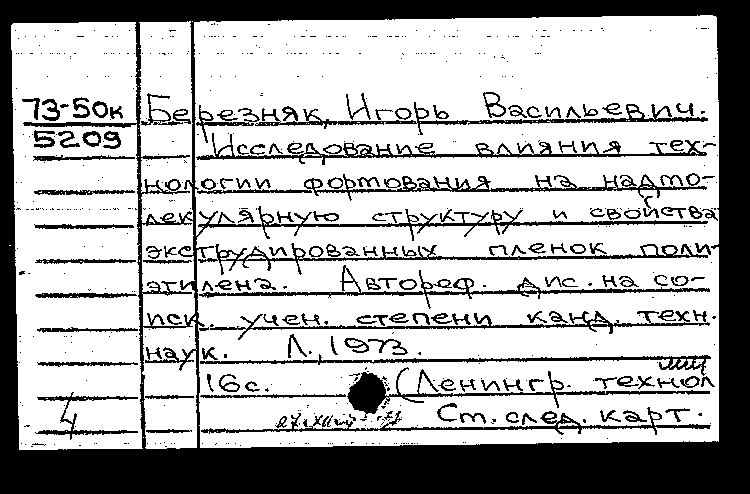 73-50к Березняк, Игорь Васильевич.
5209 Исследование влияния тех-
нологии формования на надмо-
лекулярную структуру и свойства
экструдированных пленок поли-
этилена. Автореф. дис. на со-
иск. учен. степени канд. техн.
наук. Л., 1973.
16с. (Ленингр. технол
4 Ст. след. карт.